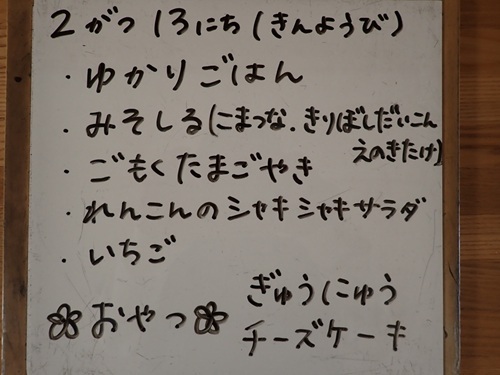 2がつ13にち(きんようび)
・ゆかりごはん
・みそしる(こまつな.きりぼしだいこん
えのきたけ)
・ごもくたまごやき
・れんこんのシャキシャキサラダ
・いちご
おやつ
ぎゅうにゅう
チーズケーキ